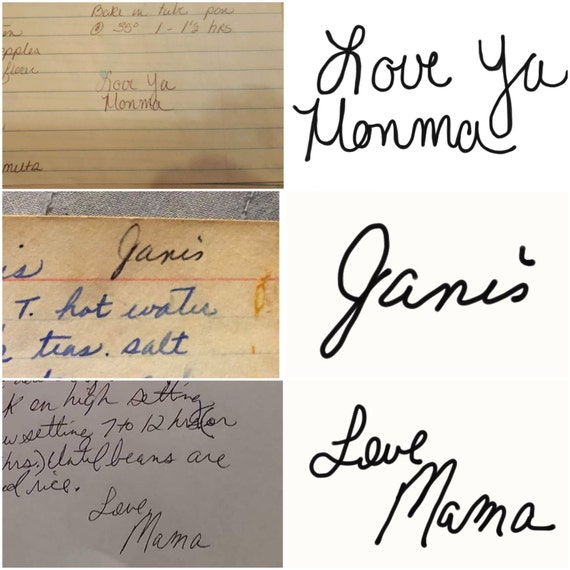 Bake in tube pan
@ 35° 1 - 1½ hrs
apples
Love Ya
Monma
Love Ya
Monma
Janis
is
T. hot water
teas. salt
Janis
on high setting
setting 7 to 12 hrs (or
hrs.) Until beans are
rice.
Love,
Mama
Love
Mama